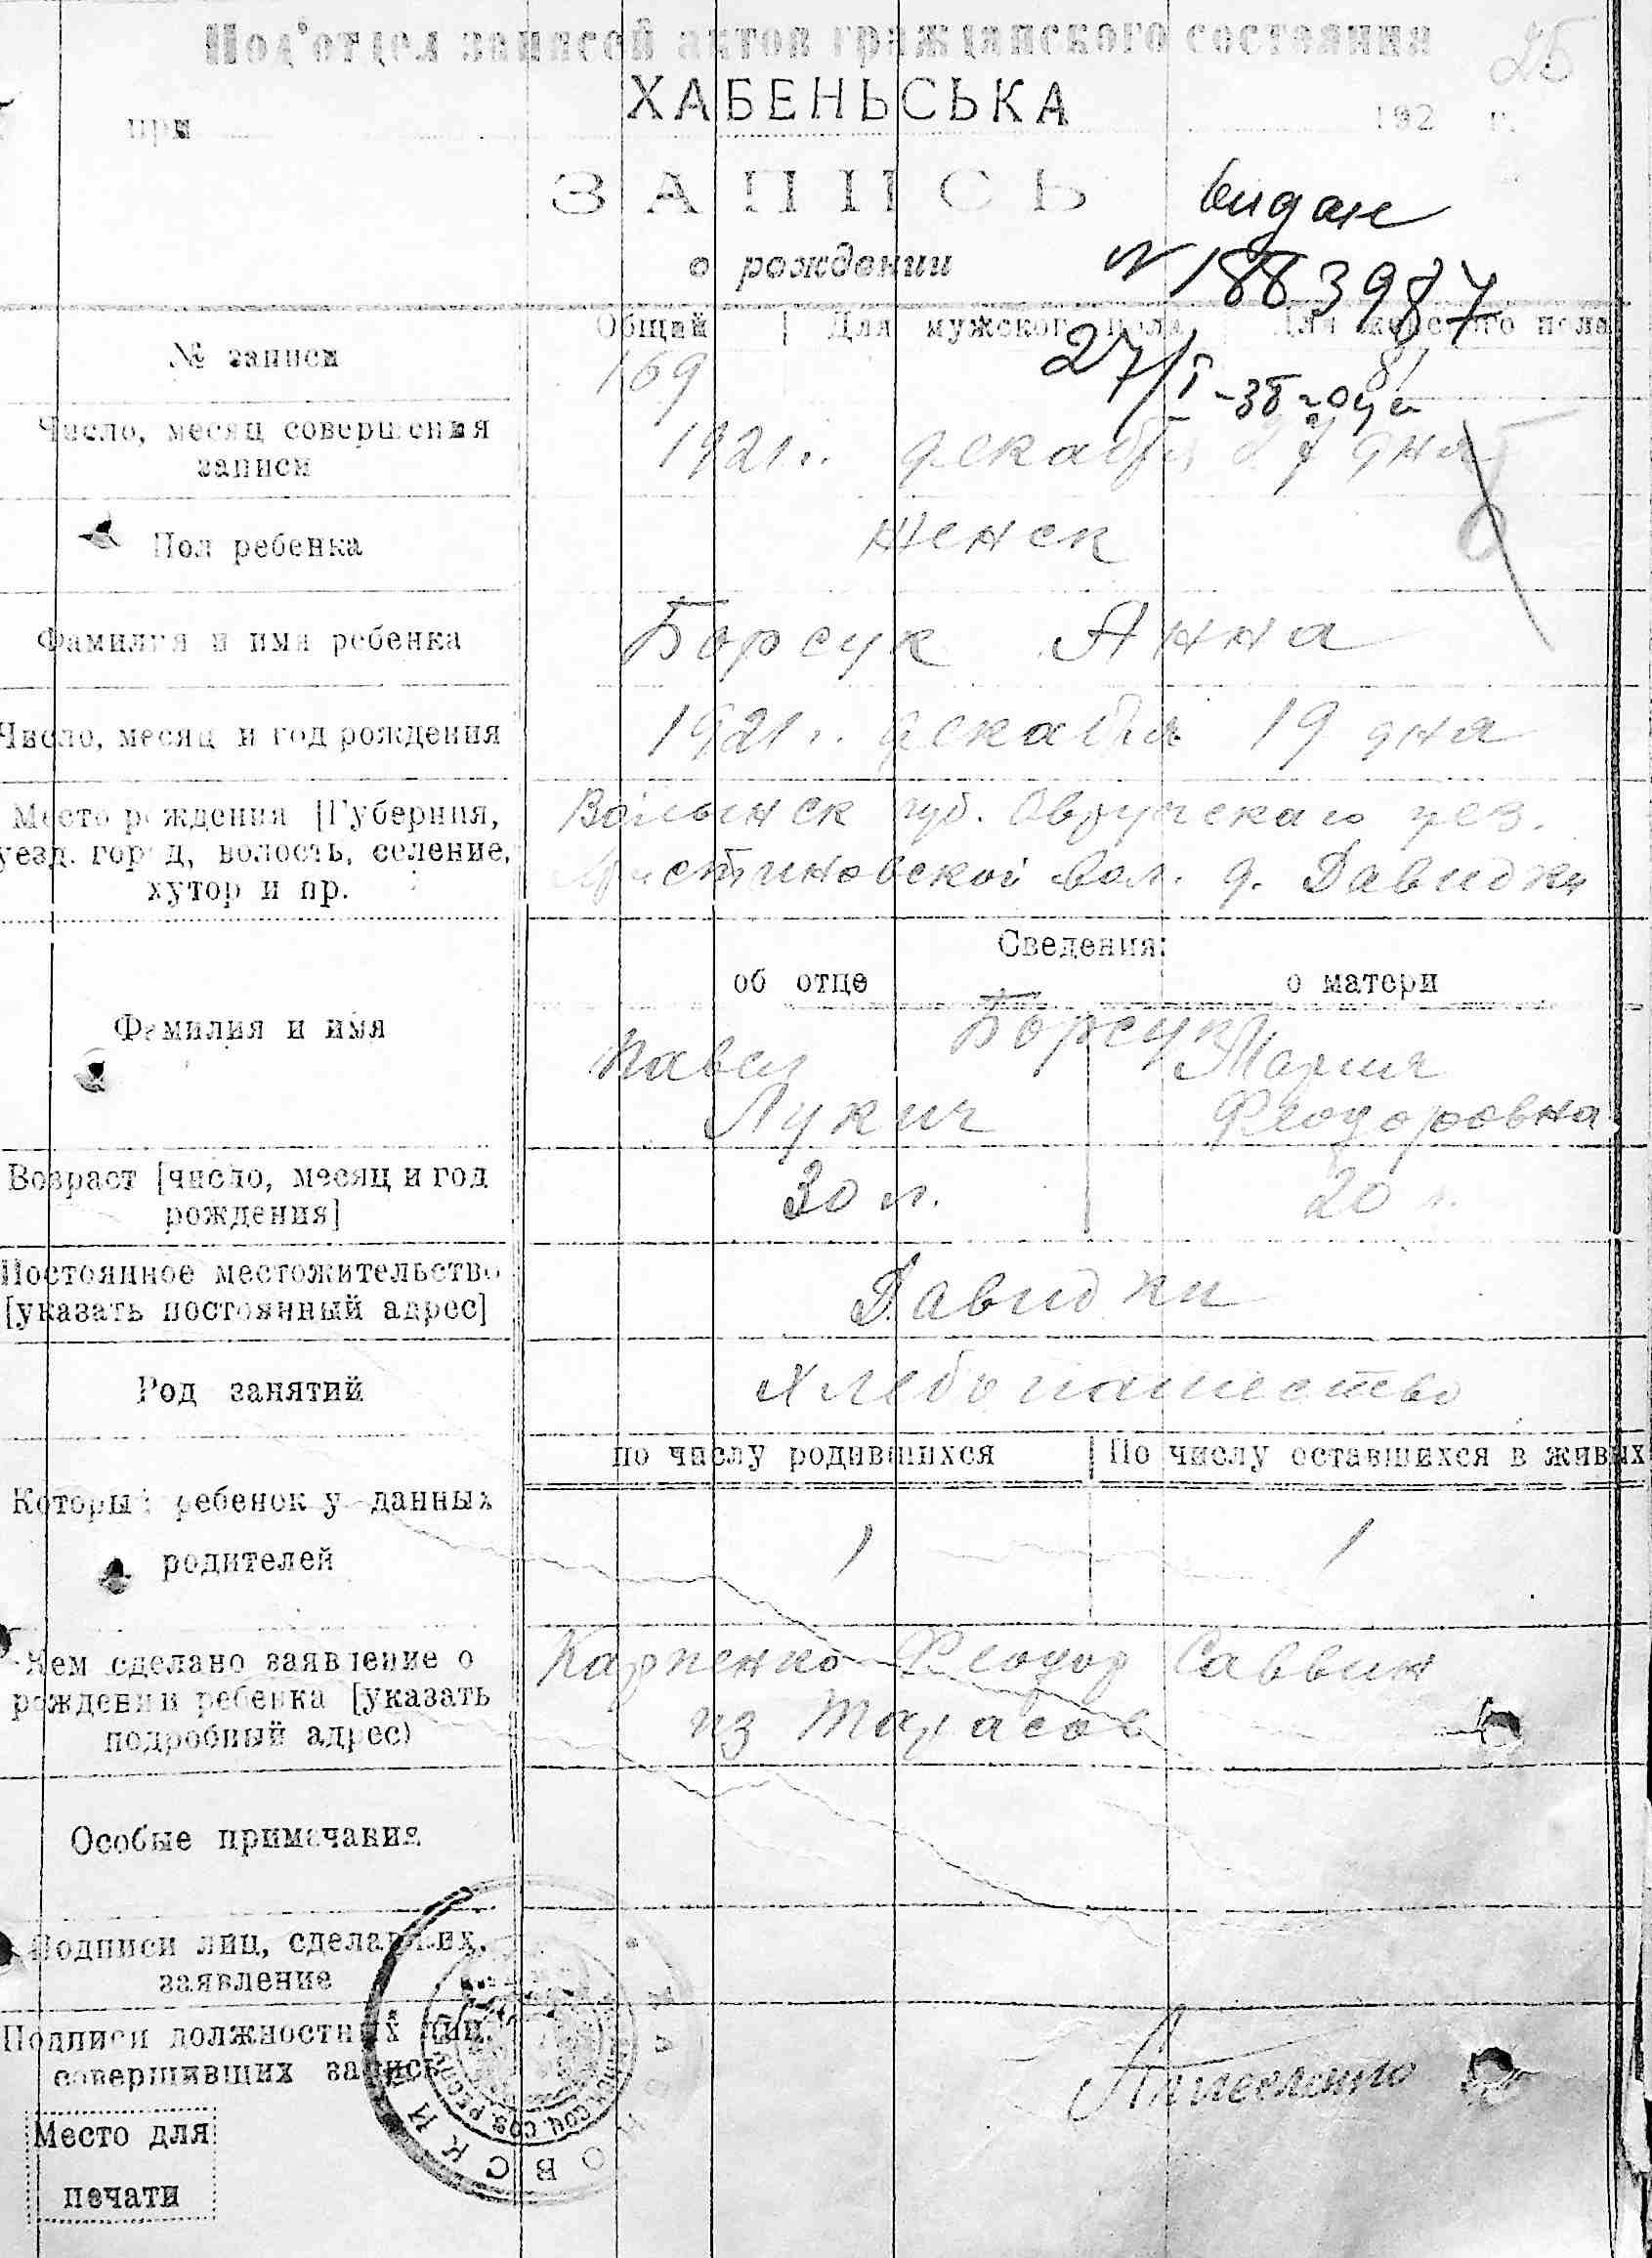 Под'отдел записей актов гражданского состояния
25
ХАБЕНЬСЬКА
при 192 г.
ЗАПИСЬ
видан
о рождении
№ 1883987
Общий | Для мужского пола | Для женского пола
27/I -38 года
№ записи 169 81
Число, месяц совершения 1921 г. декабря 27 дня
записи
Пол ребенка Женск
Фамилия и имя ребенка Борсук Анна
Число, месяц и год рождения 1921 г. декабря 19 дня
Место рождения [Губерния, Волынск губ. Овручскаго уез.
уезд. город, волость, селение, вол. д. Давидки
хутор и пр.
Сведения:
об отце о матери
Фамилия и имя Борсук
Павел Мария
Лукич Феодоровна
Возраст [число, месяц и год 30 л. 20 л.
рождения]
Постоянное местожительство Давидки
[указать постоянный адрес]
Род занятий Хлебопашество
по числу родившихся | По числу оставшихся в живых
Который ребенок у данных
родителей 1 1
Кем сделано заявление о Карпенко Феодор Саввин
рождении ребенка [указать из Тарасов
подробный адрес)
Особые примечания
Подписи лиц, сделавших,
заявление
Подписи должностных лиц,
совершивших запись
Место для
печати